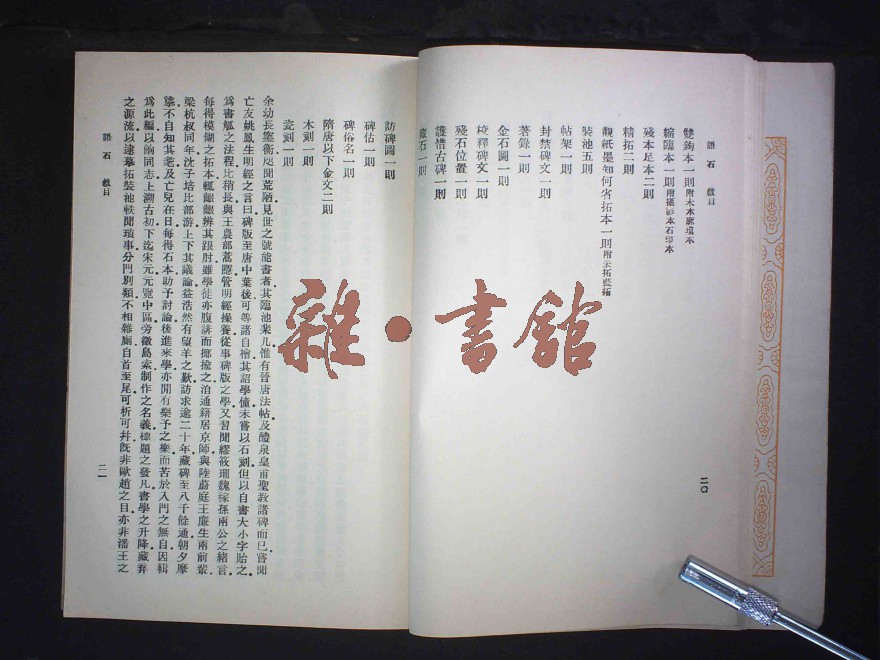 語石 敍目
雙鉤本一則附木本廓塡本
縮臨本一則附攝影本石印本
殘本足本二則
精拓二則
觀紙墨知何省拓本一則附朱拓藍拓
裝池五則
帖架一則
封禁碑文一則
著錄一則
金石圖一則
校釋碑文一則
殘石位置一則
護惜古碑一則
藏石一則
二〇
訪碑圖一則
碑估一則
碑俗名一則
隋唐以下金文二則
木刻一則
瓷刻一則
余幼長塞衡咫聞荒陋見世之號能書者其臨池棐几惟有晉唐法帖及醴泉皇甫聖敎諸碑而已嘗聞
亡友姚鳳生明經之言曰碑版至唐中葉後可等諸自檜其詔學僮未嘗以石刻但以自書大小字貽之
爲書觚之法程比稍長與王農部蒿隱管明經操養從事碑版之學又習聞繆筱珊魏稼孫兩公之緒言
每得模餬之拓本輒齦齦辨其跟肘雖學徒亦腹誹而揶揄之洎通籍居京師與陸蔚庭王廉生兩前輩
梁杭叔同年沈子培比部游上下其議論益浩然有望羊之歎訪求逾二十年藏碑至八千餘通朝夕摩
挲不自知其耄及亡兒在日每得石本助予討論後進來學亦閒有樂予之樂而苦於入門之無自因輯
爲此編以餉同志上溯古初下迄宋元元覽中區旁徵島索制作之名義標題之發凡書學之升降藏弆
之源流以逮摹拓裝池軼聞瑣事分門別類不相雜厠自首至尾可析可幷旣非歐趙之目亦非潘王之
語石 敍目
二一
雜·書館